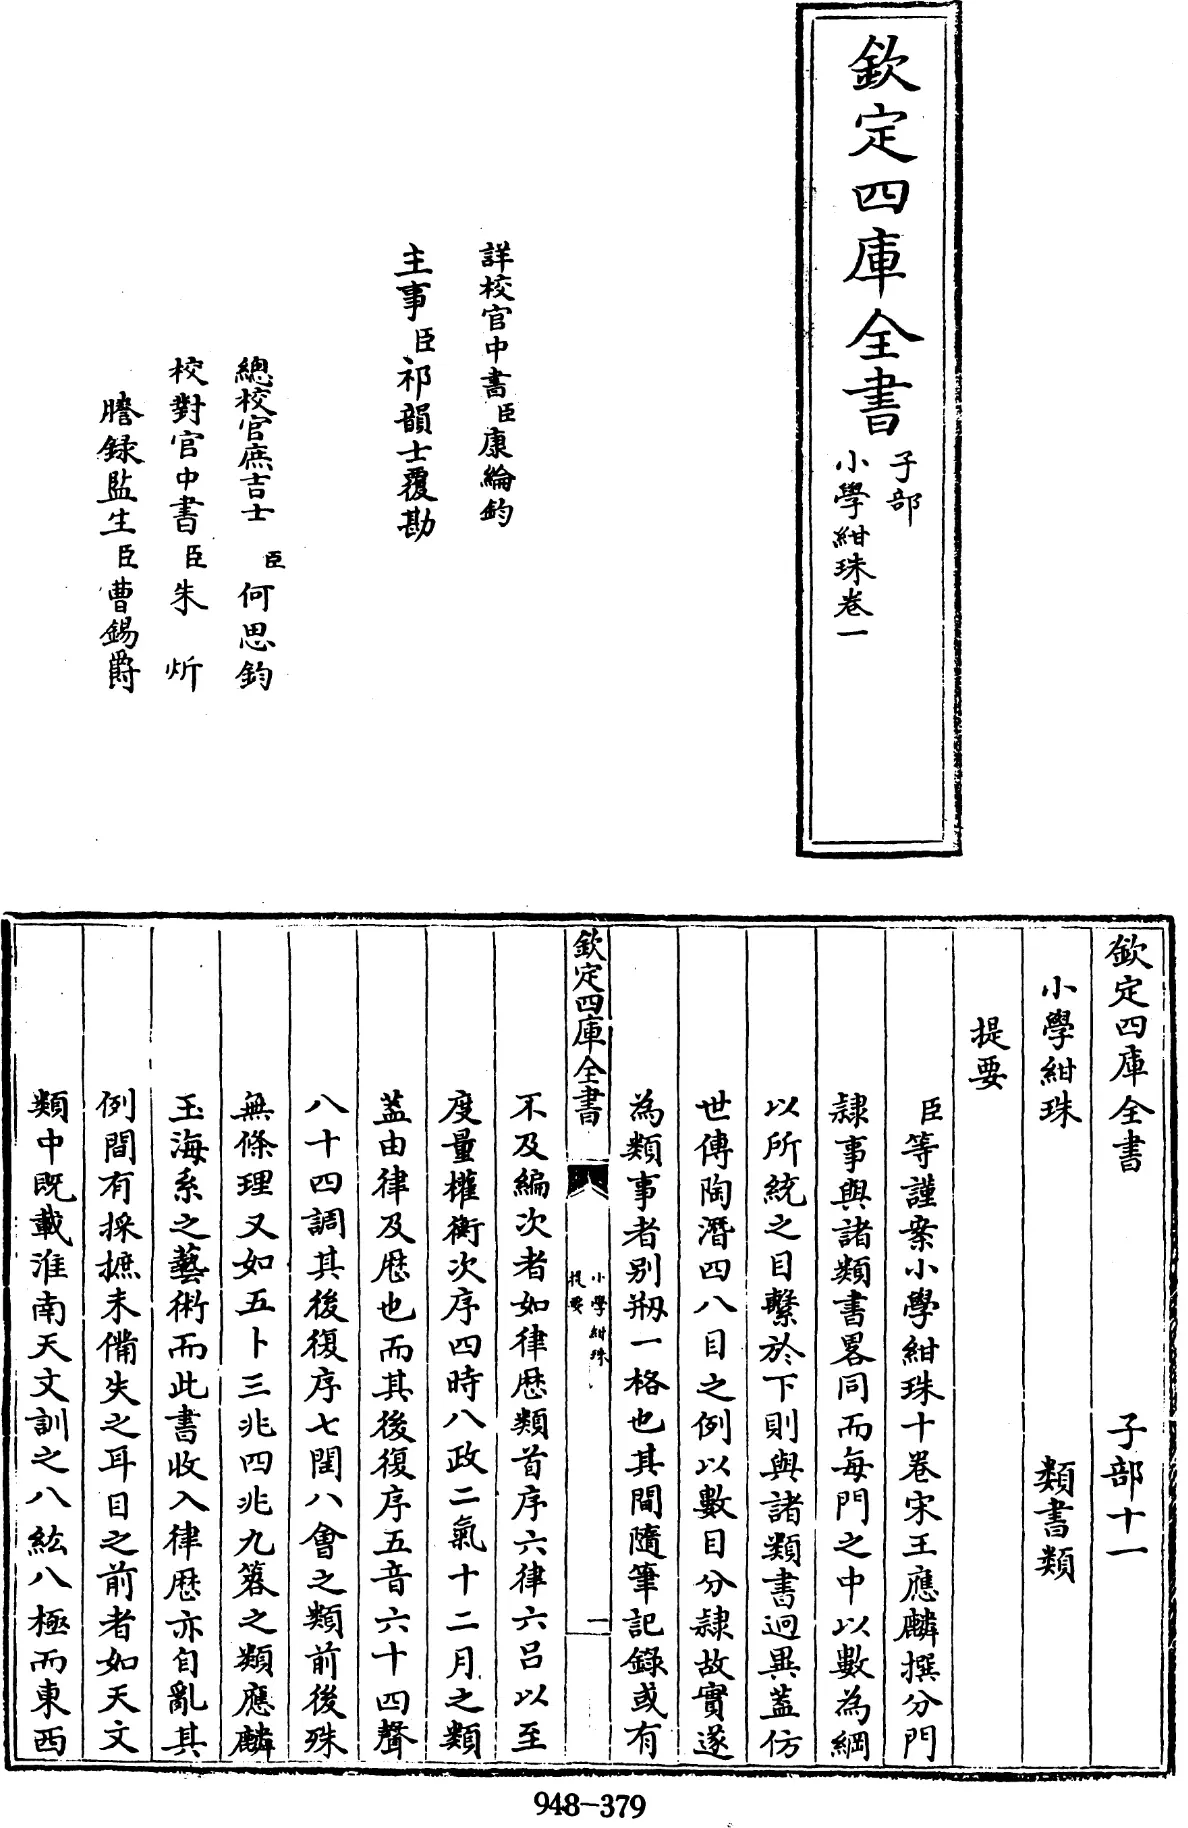 欽定四庫全書
子部
小學紺珠卷一
詳校官中書臣康綸鈞
主事臣祁韻士覆勘
總校官庶吉士臣何思鈞
校對官中書臣朱炘
謄錄監生臣曹錫爵
欽定四庫全書 子部十一
小學紺珠 類書類
提要
臣等謹案小學紺珠十卷宋王應麟撰分門
隷事與諸類書畧同而每門之中以數為綱
以所統之目繫於下則與諸類書迥異葢仿
世傳陶潛四八目之例以數目分隷故實遂
為類事者别剏一格也其間隨筆記錄或有
欽定四庫全書
小學紺珠
提要
一
不及編次者如律厯類首序六律六呂以至
度量權衡次序四時八政二氣十二月之類
葢由律及厯也而其後復序五音六十四聲
八十四調其後復序七閏八會之類前後殊
無條理又如五卜三兆四兆九簭之類應麟
玉海系之藝術而此書收入律厯亦自亂其
例間有採摭未備失之耳目之前者如天文
類中既載淮南天文訓之八紘八極而東西
948-379